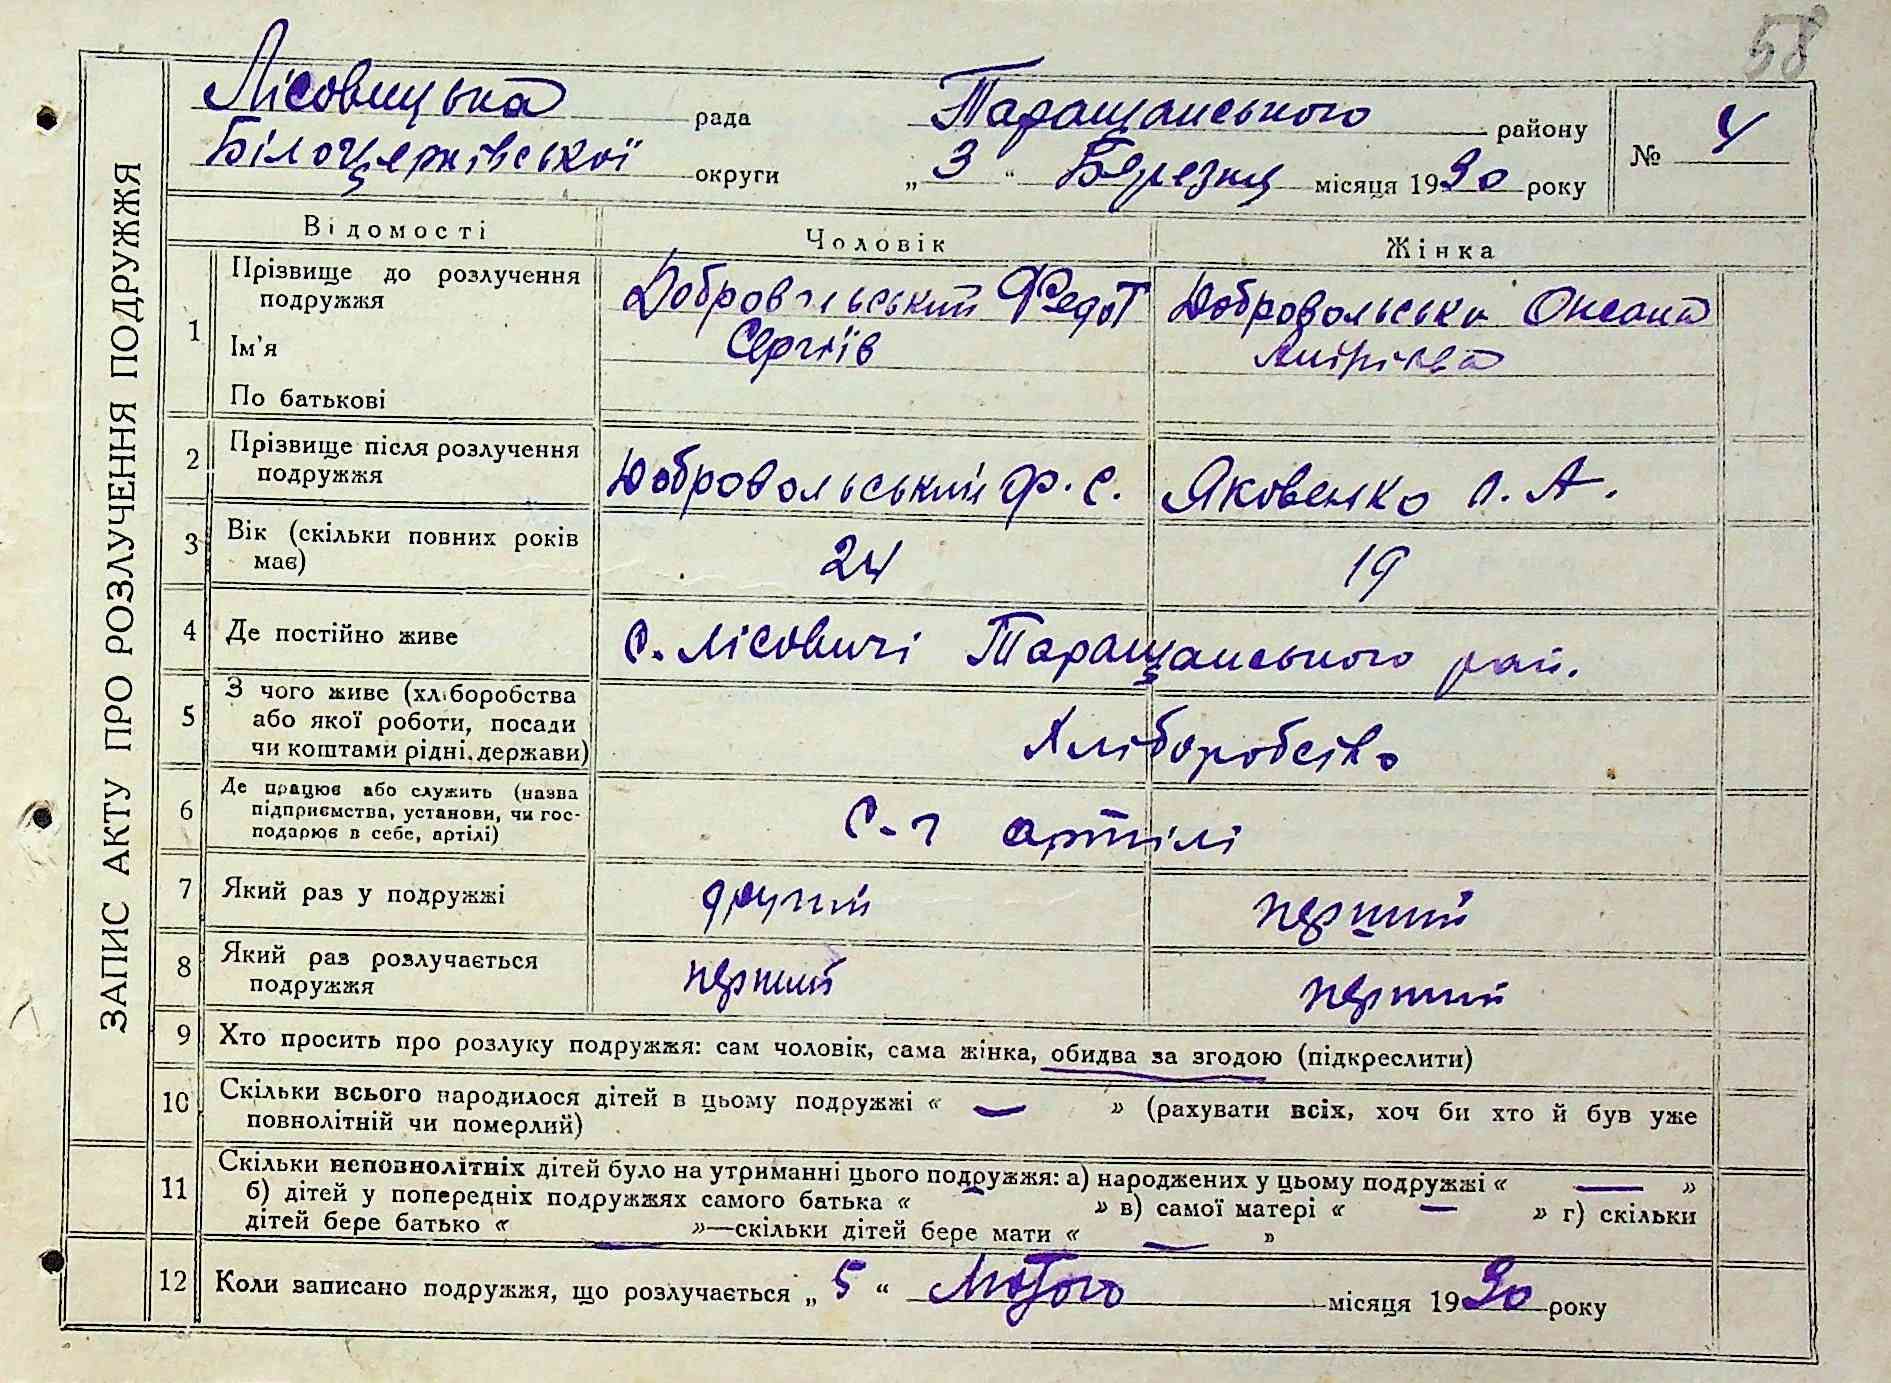 58
ЗАПИС АКТУ ПРО РОЗЛУЧЕННЯ ПОДРУЖЖЯ
Лісовицька рада Таращанського району № 4
Білоцерківської округи „ 3 “ Березня місяця 1930 року
Відомості Чоловік Жінка
1 Прізвище до розлучення подружжя Добровольський Федот Добровольська Оксана
Ім'я Сергіїв
По батькові
2 Прізвище після розлучення подружжя Добровольський Ф. С. Яковенко О. А.
3 Вік (скільки повних років має) 24 19
4 Де постійно живе с. Лісовичі Таращанського рай.
5 З чого живе (хліборобства
або якої роботи, посади
чи коштами рідні, держави) Хліборобство
6 Де працює або служить (назва
підприємства, установи, чи гос-
подарює в себе, артілі) С-г артілі
7 Який раз у подружжі другий перший
8 Який раз розлучається
подружжя перший перший
9 Хто просить про розлуку подружжя: сам чоловік, сама жінка, обидва за згодою (підкреслити)
10 Скільки всього народилося дітей в цьому подружжі « — » (рахувати всіх, хоч би хто й був уже
повнолітній чи померлий)
11 Скільки неповнолітніх дітей було на утриманні цього подружжя: а) народжених у цьому подружжі « — »
б) дітей у попередніх подружжях самого батька « — » в) самої матері « — » г) скільки
дітей бере батько « — »—скільки дітей бере мати « — »
12 Коли записано подружжя, що розлучається „ 5 “ Лютого місяця 1930 року